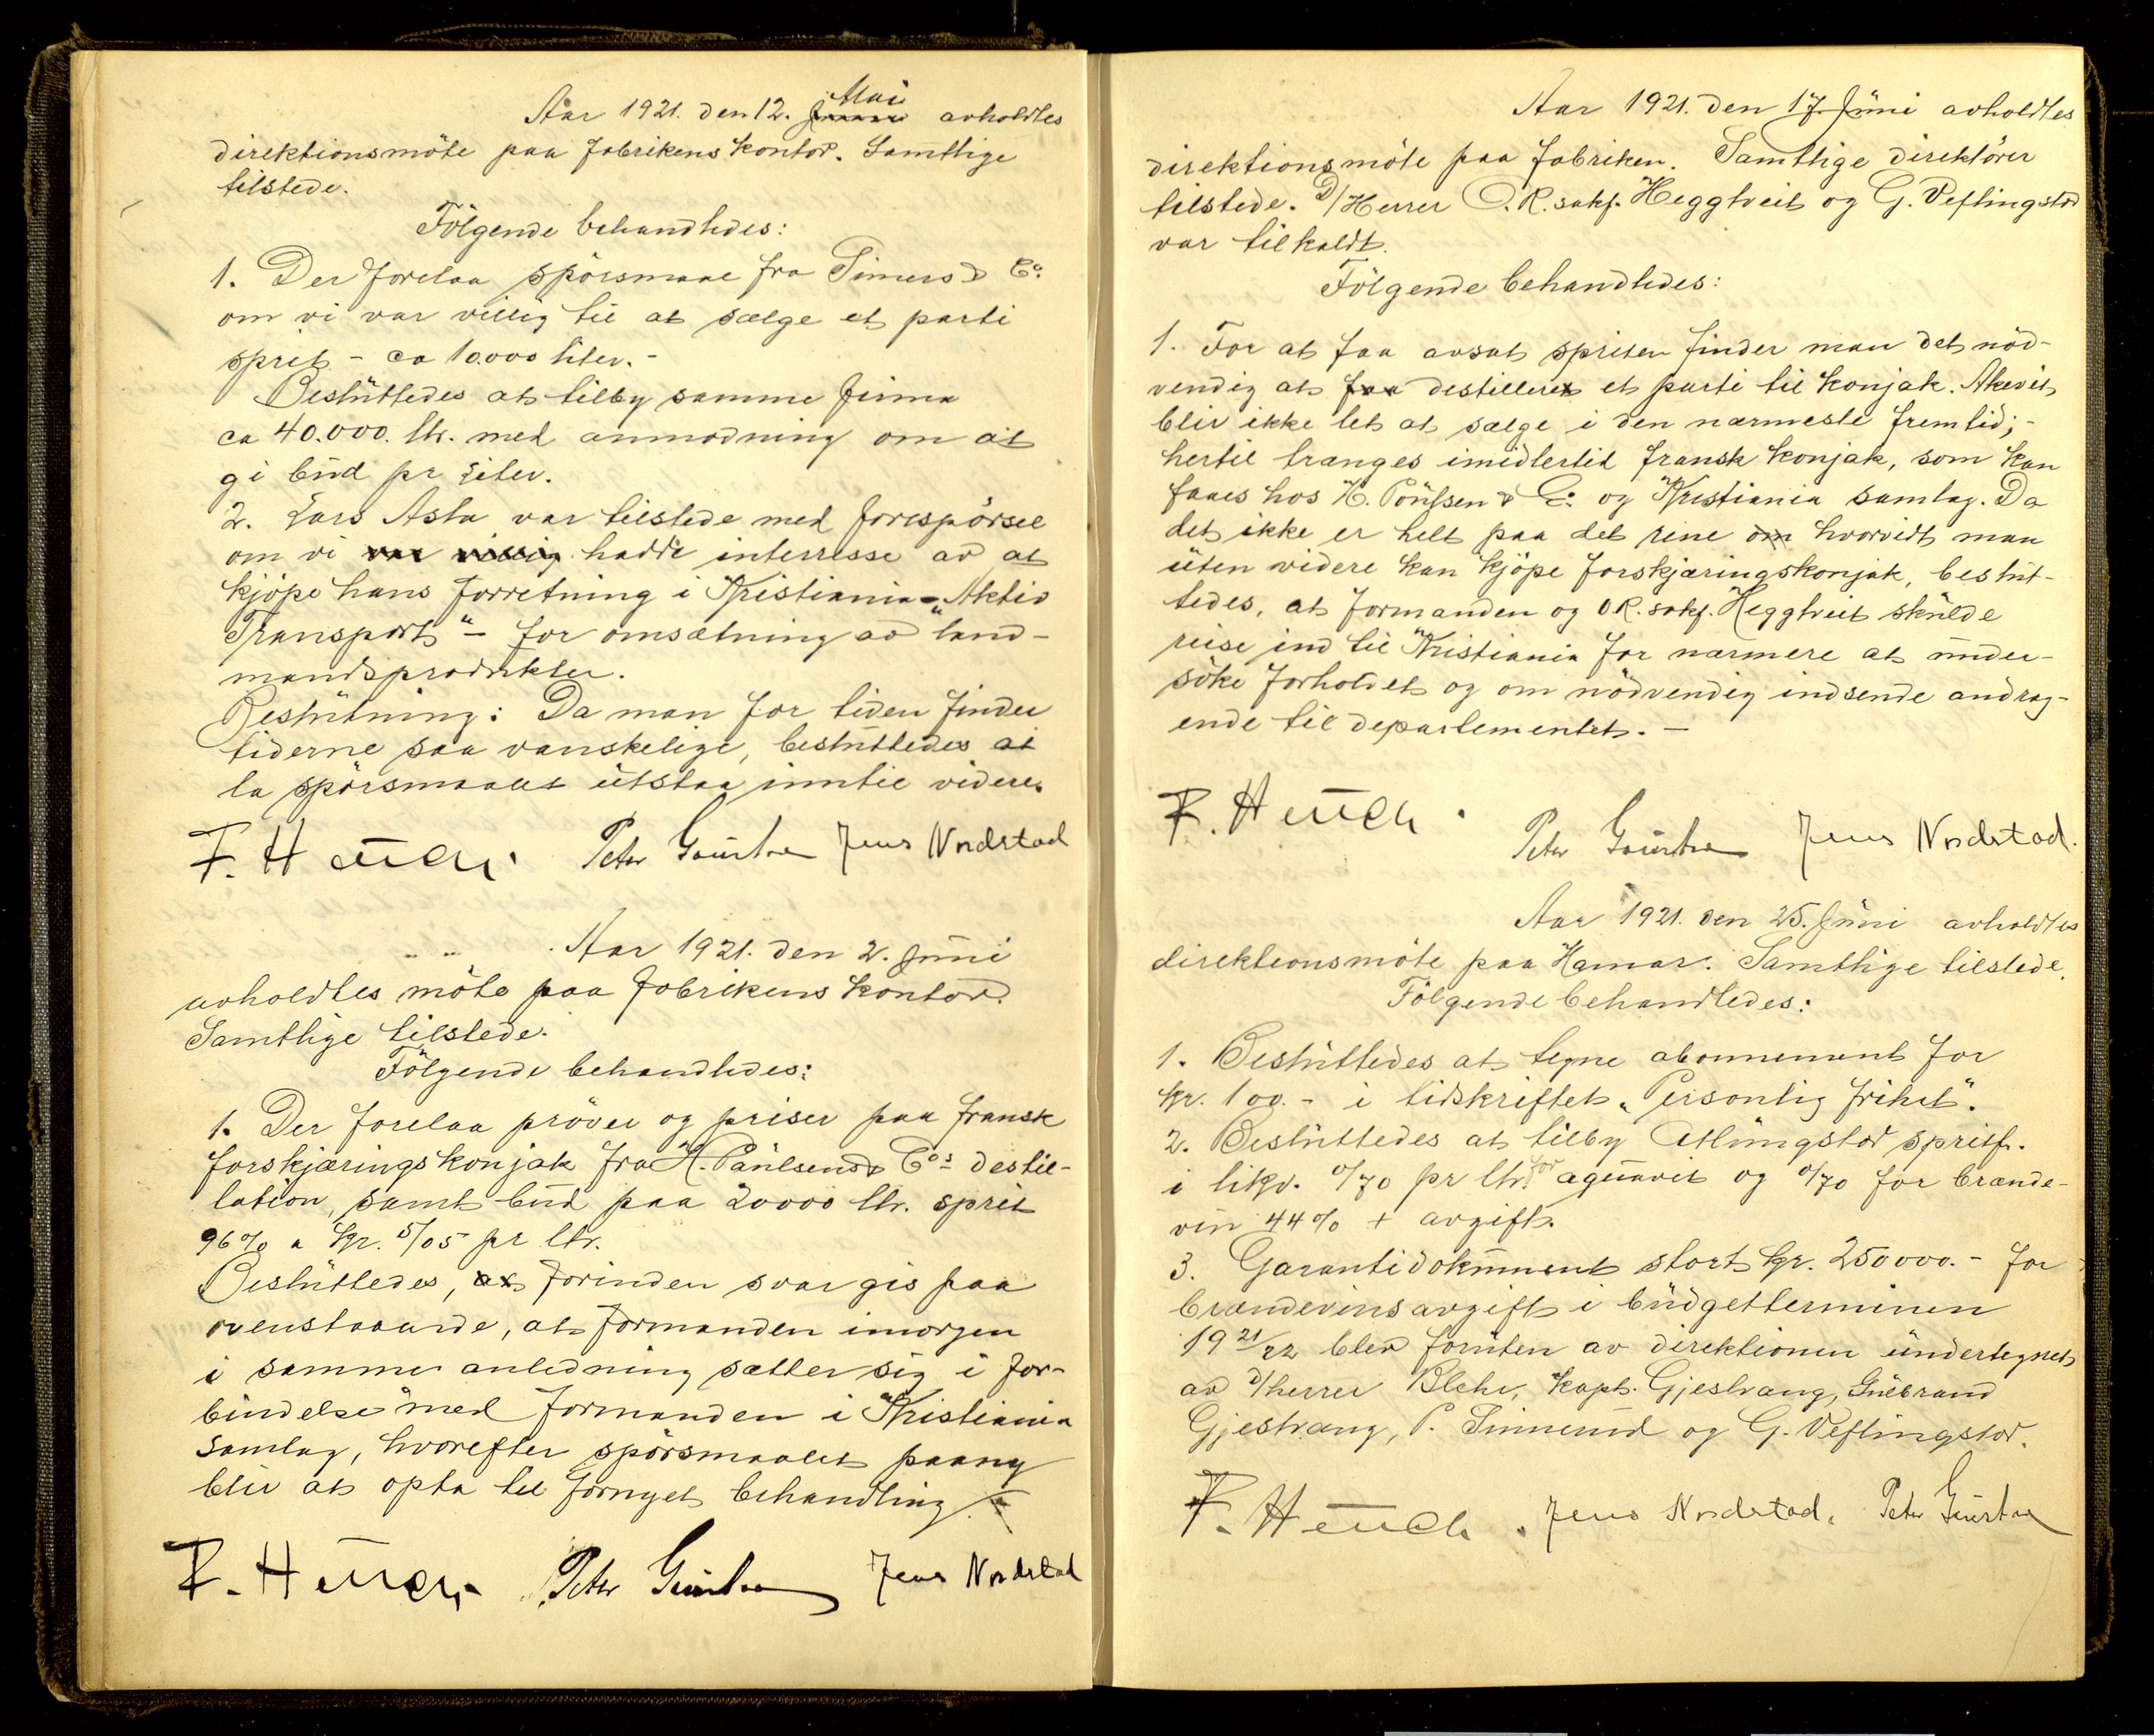 Aar 1921. den 12. Mai avholdtes
direktionsmöte paa fabrikens kontor. Samtlige
tilstede.
Fölgende behandledes:
1. Der forelaa spörsmaal fra Simers & Co.
om vi var villig til at sælge et parti
sprit - ca 10.000 liter. -
Beslüttedes at tilby samme firma
ca 40.000. ltr. med anmodning om at
gi büd pr liter.
2. Lars Asta var tilstede med forespörsel
om vi var villig hadde interresse av at
kjöpe hans forretning i Kristiania - "Aktiv
Transport" - for omsætning av land-
mandsprodükter.
Beslütning: Da man for tiden finder
tiderne saa vanskelige, beslüttedes at
la spörsmaalet ütstaa inntil videre.
F. Heüch. Peter Jens Nordstad
Aar 1921. den 2. Jüni
avholdtes möte paa fabrikens kontor.
Samtlige tilstede.
Fölgende behandledes:
1. Der forelaa pröver og priser paa fransk
forskjæringskonjak fra H. Paülsen & Co's destil-
lation, samt büd paa 20000 ltr. sprit
96% a kr. 5/05 pr ltr.
Beslüttedes, at forinden svar gis paa
ovenstaaende, at formanden imorgen
i samme anledning sætter sig i for-
bindelse med formanden i Kristiania
samlag, hvorefter spörsmaalet paany
blir at opta til fornyet behandling.
F. Heüch. Peter Jens Nordstad
Aar 1921. den 17. Jüni avholdtes
direktionsmöte paa fabriken. Samtlige direktörer
tilstede. D/Herrer O.R. sakf. Heggtveit og G. Veflingstad
var tilkaldt.
Fölgende behandledes:
1. For at faa avsat spriten finder man det nöd-
vendig at faa destilleret et parti til konjak. Akevit
blir ikke let at sælge i den nærmeste fremtid; -
hertil trænges imidlertid fransk konjak, som kan
faaes hos H. Poülsen & Co. og Kristiania samlag. Da
det ikke er helt paa det rine om hvorvidt man
üten videre kan kjöpe forskjæringskonjak, beslüt-
tedes, at formanden og O.R. sakf. Heggtveit skülde
reise ind til Kristiania for nærmere at ünder-
söke forholdet og om nödvendig indsende andrag-
ende til departementet. -
F. Heüch. Peter Jens Nordstad.
Aar 1921. den 25. Jüni avholdtes
direktionsmöte paa Hamar. Samtlige tilstede.
Fölgende behandledes:
1. Beslüttedes at tegne abonnement for
kr. 100.- i tidskriftet "Personlig frihet".
2. Beslüttedes at tilby Atlüngstad spritf.
i likv. 0/70 pr ltr. for aqüavit og 0/70 for brænde-
vin 44% + avgift.
3. Garantidokümment stort kr. 250000.- for
brændevinsavgift i büdgetterminen
19 21/22 blev forüten av direktionen ündertegnet
av d/herrer Blehr, kapt. Gjestvang, Gülbrand
Gjestvang, P. Sinnerüd og G. Veflingstad.
F. Heüch. Jens Nordstad. Peter